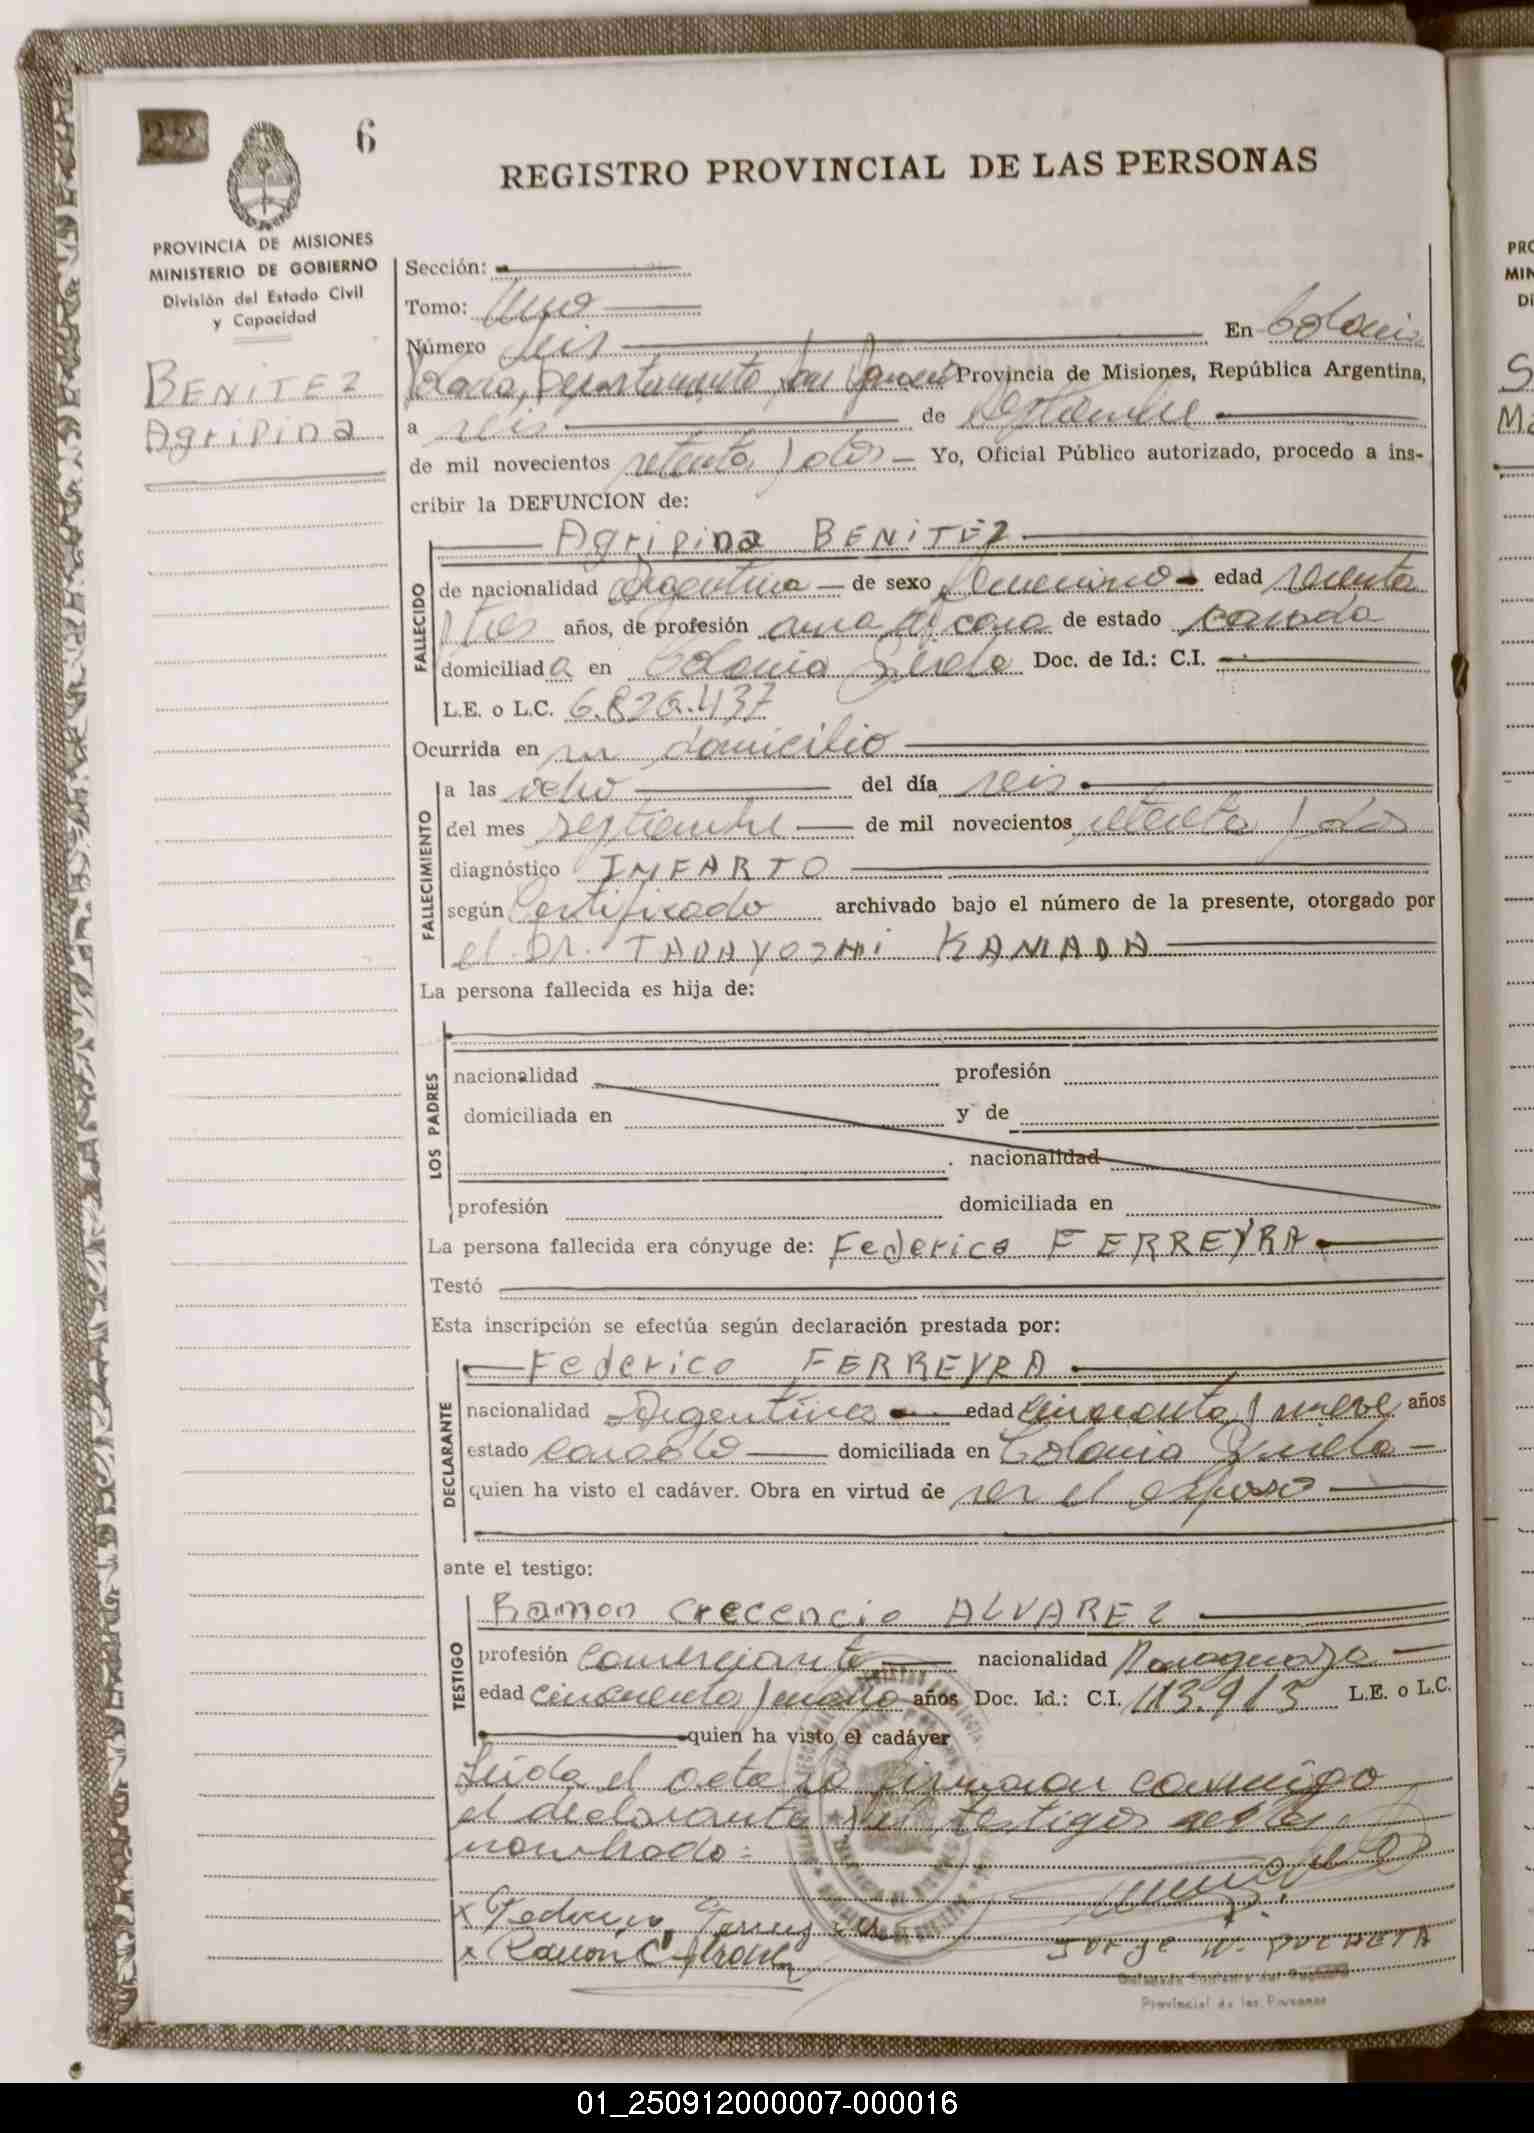 22
6
REGISTRO PROVINCIAL DE LAS PERSONAS
PROVINCIA DE MISIONES
MINISTERIO DE GOBIERNO
División del Estado Civil
y Capacidad
BENITEZ
Agripina
Sección:
Tomo: Uno
Número Seis En Colonia
Departamento Provincia de Misiones, República Argentina,
a seis de Septiembre
de mil novecientos setenta y dos Yo, Oficial Público autorizado, procedo a ins-
cribir la DEFUNCION de:
FALLECIDO
Agripina BENITEZ
de nacionalidad Argentina de sexo femenino edad
y tres años, de profesión ama de casa de estado casada
domiciliada en Colonia Doc. de Id.: C.I.
L.E. o L.C. 6.826.437
Ocurrida en su domicilio
FALLECIMIENTO
a las ocho del día seis
del mes septiembre de mil novecientos setenta y dos
diagnóstico INFARTO
según Certificado archivado bajo el número de la presente, otorgado por
el Dr. KANADA
La persona fallecida es hija de:
LOS PADRES
nacionalidad profesión
domiciliada en y de
nacionalidad
profesión domiciliada en
La persona fallecida era cónyuge de: Federico FERREYRA
Testó
Esta inscripción se efectúa según declaración prestada por:
DECLARANTE
Federico FERREYRA
nacionalidad Argentina edad cincuenta y nueve años
estado casado domiciliada en Colonia
quien ha visto el cadáver. Obra en virtud de ser el esposo
ante el testigo:
TESTIGO
Ramon Crecencio ALVAREZ
profesión Comerciante nacionalidad Paraguaya
edad cincuenta y cuatro años Doc. Id.: C.I. 113.913 L.E. o L.C.
quien ha visto el cadáver
Leída el acta la firman conmigo
el declarante y el testigo
nombrado:
x Federico Ferreyra
x Ramón C. Alvarez
Jorge W. PUCHETA
Provincial de las Personas
PRO
MIN
Di
01_250912000007-000016